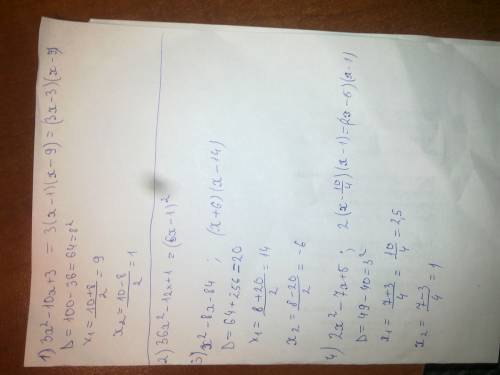 1) 3x² - 10x + 3 = 3(x-1)(x-9) = (3x-3)(x-9)
D = 100 - 36 = 64 = 8²
x₁ = \frac{10+8}{2} = 9
x₂ = \frac{10-8}{2} = 1
2) 36x² - 12x + 1 = (6x-1)²
3) x² - 8x - 84 ; (x+6)(x-14)
D = 64 + 256 = 20
x₁ = \frac{8+20}{2} = 14
x₂ = \frac{8-20}{2} = -6
4) 2x² - 7x + 5 ; 2(x - \frac{10}{4})(x-1) = (2x-5)(x-1)
D = 49 - 40 = 3²
x₁ = \frac{7+3}{4} = \frac{10}{4} = 2,5
x₂ = \frac{7-3}{4} = 1